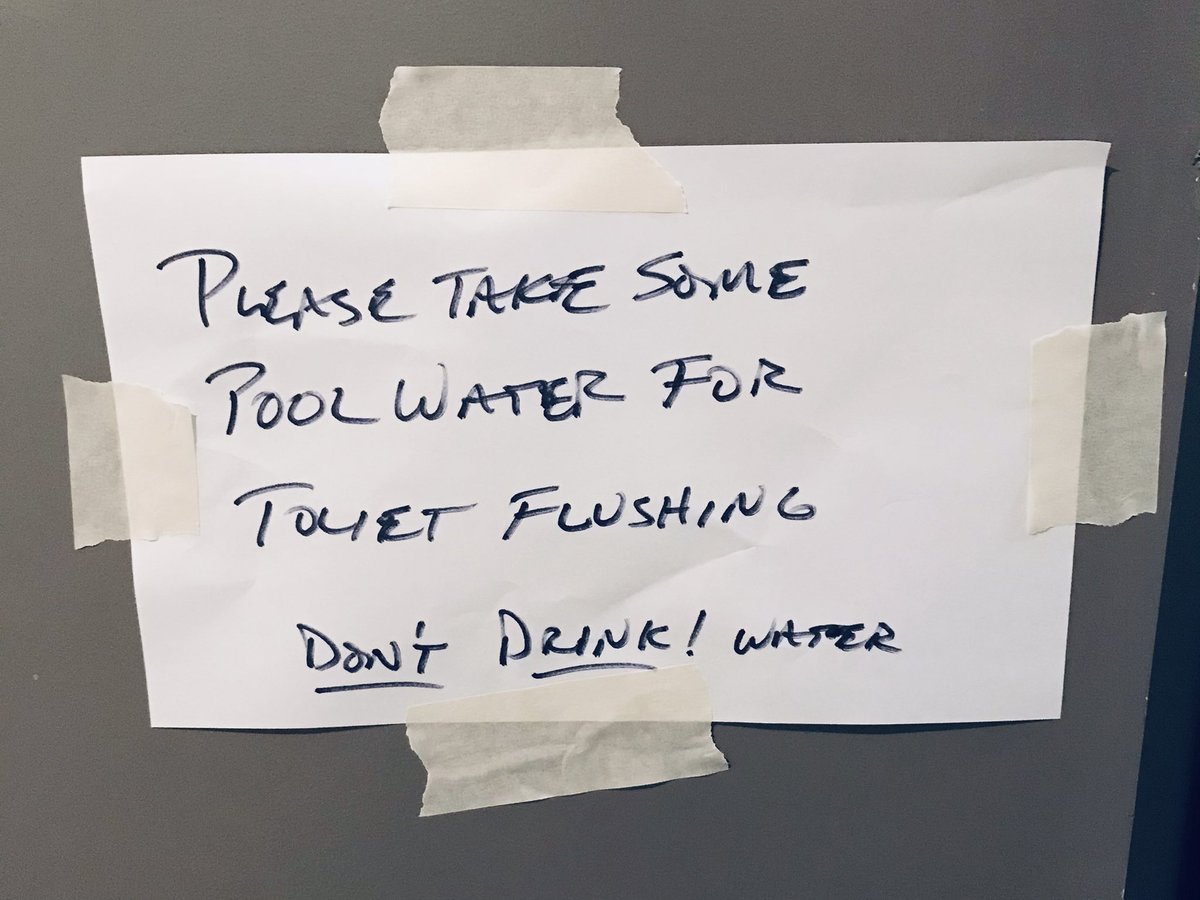 PLEASE TAKE SOME
POOL WATER FOR
TOLIET FLUSHING
DON'T DRINK! WATER